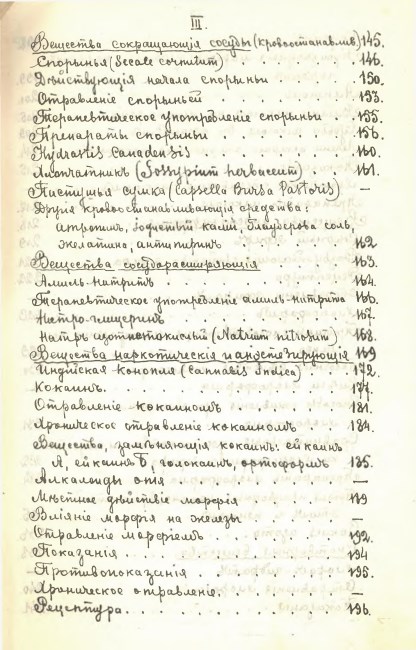 III.
Вещества сокращающія сосуды (кровоостанавлив.) 145.
Спорынья (Secale cornutum) . . . . . 146.
Дѣйствующія начала спорыньи . . . . . 150.
Отравленіе спорыньей . . . . . 153.
Терапевтическое употребленіе спорыньи . . 155.
Препараты спорыньи . . . . . 156.
Hydrastis Canadensis . . . . . 160.
Хлопчатникъ (Gossypium herbaceum) . . . . 161.
Пастушья сумка (Capsella Bursa Pastoris) —
Другія кровоостанавливающія средства:
Атропинъ, іодистый калій, Глауберова соль,
желатина, антипиринъ . . . . . 162
Вещества сосудорасширяющія . . . . . 163.
Амилъ-нитритъ . . . . . 164.
Терапевтическое употребленіе амилъ-нитрита 166.
Нитро-глицеринъ . . . . . 167.
Натръ азотистокислый (Natrium nitrosum) . . 168.
Вещества наркотическія и анэстезирующія 169
Индійская конопля (Cannabis Indica) . . . . 172.
Кокаинъ . . . . . 177.
Отравленіе кокаиномъ . . . . . 181.
Хроническое отравленіе кокаиномъ . . . . 184.
Вещества, замѣняющія кокаинъ: ейкаинъ
А, ейкаинъ Б, голокаинъ, ортоформъ 185.
Алкалоиды опія . . . . . —
Мѣстное дѣйствіе морфія . . . . . 189
Вліяніе морфія на железы . . . . . —
Отравленіе морфіемъ . . . . . 192.
Показанія . . . . . 194
Противопоказанія . . . . . 195.
Хроническое отравленіе . . . . . —
Рецептура . . . . . 196.